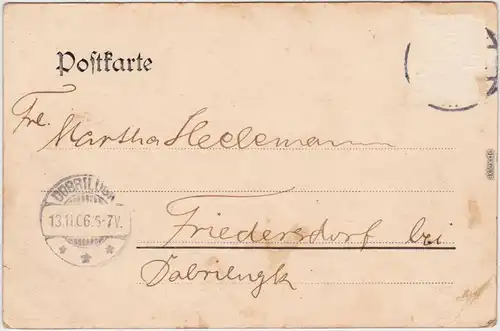 Postkarte
Frl. Martha Heelemann
DOBRILUGK
13.11.06.6-7V.
Friedersdorf bei
Dobrilugk